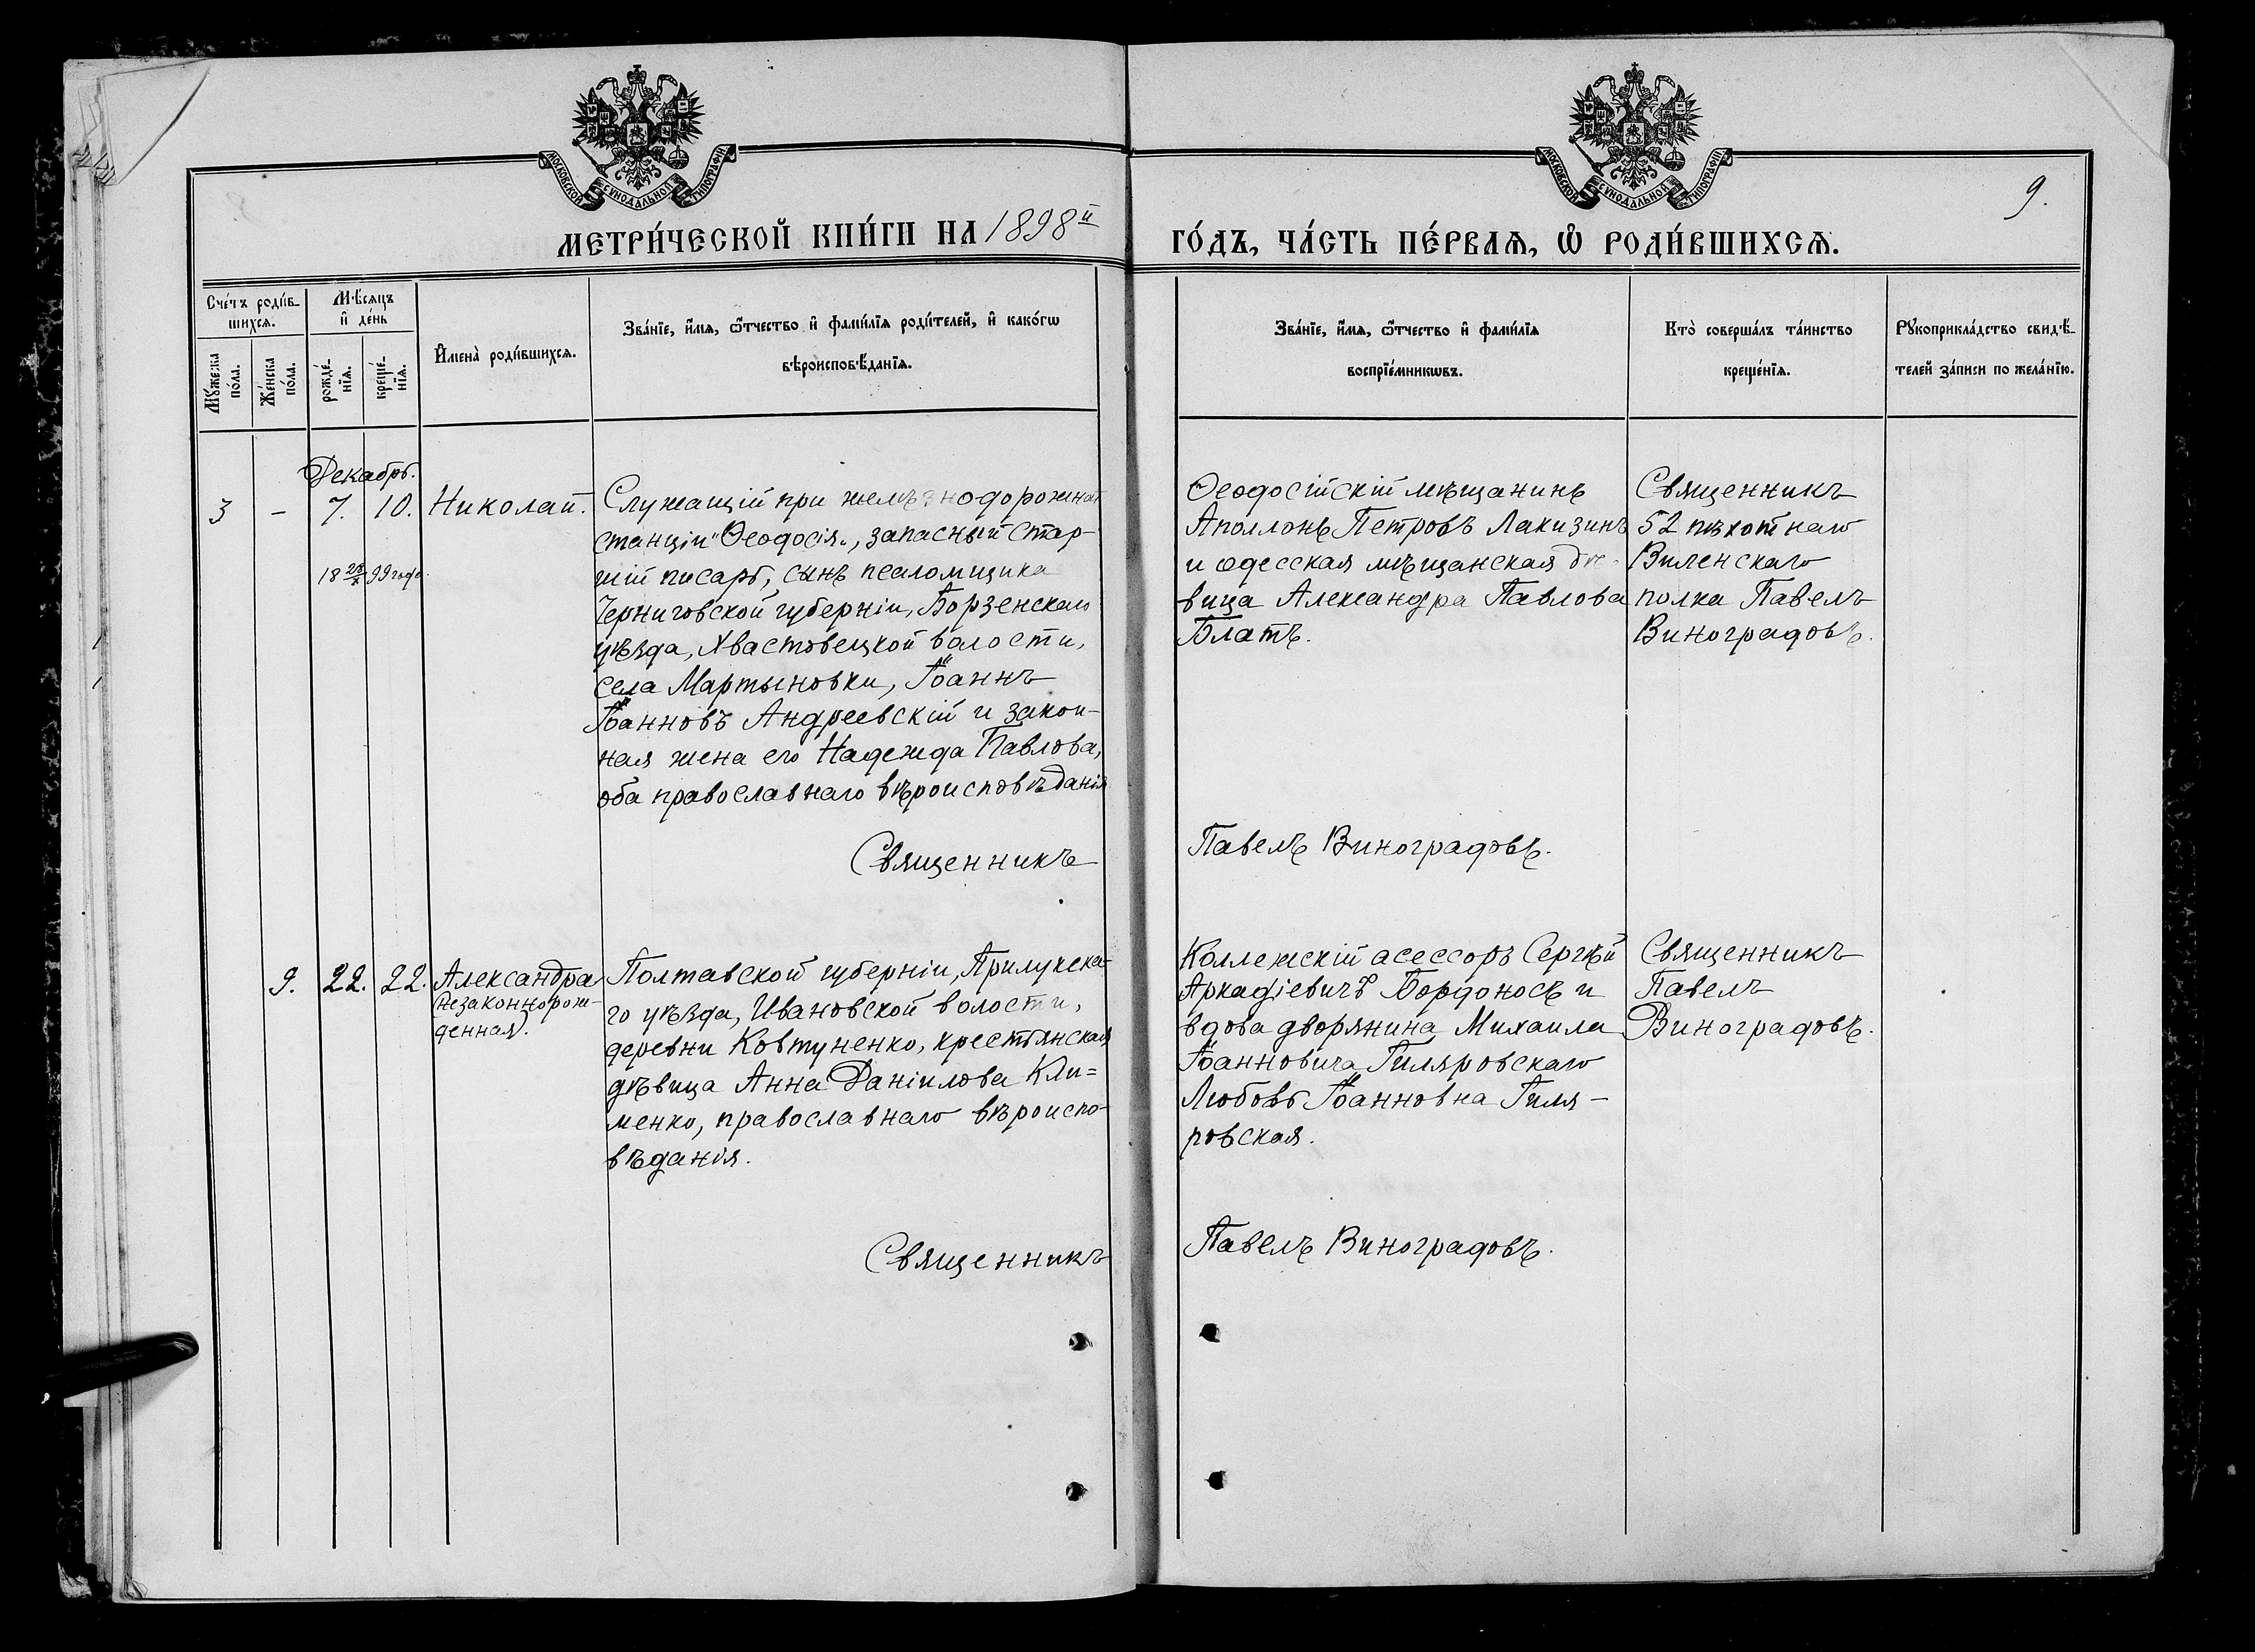 МОСКОВСКОЙ СѴНОДАЛЬНОЙ ТИПОГРАФІИ
МОСКОВСКОЙ СѴНОДАЛЬНОЙ ТИПОГРАФІИ
9.
МЕТРИ́ЧЕСКОЙ КНИ́ГИ НА 1898й
ГО́ДЪ, ЧА́СТЬ ПЕ́РВАѦ, Ѡ҆ РОДИ́ВШИХСѦ.
Сче́тъ роди́в-
шихсѧ.
Мꙋ́жеска
по́ла.
Же́нска
по́ла.
Мѣ́сѧцъ
и҆ де́нь
рожде́-
нїѧ.
креще́-
нїѧ.
И҆мена̀ роди́вшихсѧ.
Зва́нїе, и҆́мѧ, ѻ҆́тчество и҆ фами́лїѧ роди́телей, и҆ како́гѡ
вѣроисповѣ́данїѧ.
Зва́нїе, и҆́мѧ, ѻ҆́тчество и҆ фами́лїѧ
воспрїе́мникѡвъ.
Кто̀ соверша́лъ та́инство
креще́нїѧ.
Рꙋкоприкла́дство свидѣ́-
телей за́писи по жела́нїю.
Декабрь.
3 - 7. 10. Николай.
18 99 года.
Служащій при желѣзнодорожной
станціи "Ѳеодосія", запасный стар-
шій писарь, сынъ псаломщика
Черниговской губерніи, Борзенскаго
уѣзда, Хвастовецкой волости,
села Мартыновки, Іоаннъ
Іоанновъ Андреевскій и закон-
ная жена его Надежда Павлова,
оба православнаго вѣроисповѣданія
Священникъ
Ѳеодосійскій мѣщанинъ
Аполлонъ Петровъ Лакизинъ
и одесская мѣщанская дѣ-
вица Александра Павлова
Блатъ.
Павелъ Виноградовъ.
Священникъ
52 пѣхотнаго
Виленскаго
полка Павелъ
Виноградовъ.
9. 22. 22. Александра
(незаконнорож-
денная).
Полтавской губерніи, Прилукска-
го уѣзда, Ивановской волости,
деревни Ковтуненко, крестьянская
дѣвица Анна Даніилова Кли=
менко, православнаго вѣроиспо-
вѣданія.
Священникъ
Коллежскій асессоръ Сергѣй
Аркадіевичъ Бордоносъ и
вдова дворянина Михаила
Іоанновича Гиляровскаго
Любовь Іоанновна Гиля-
ровская.
Павелъ Виноградовъ.
Священникъ
Павелъ
Виноградовъ.